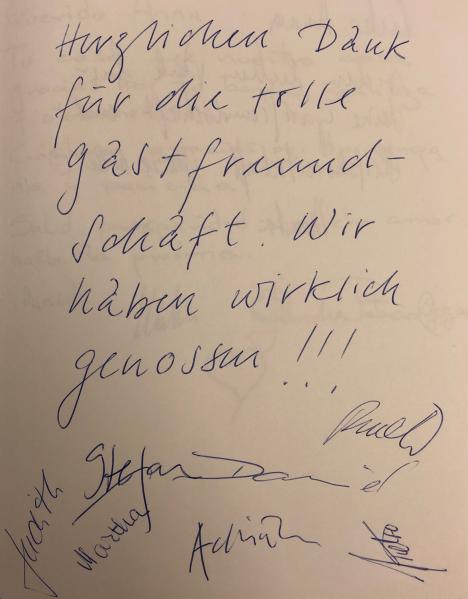 Herzlichen Dank
für die tolle
gastfreund-
schaft. Wir
haben wirklich
genossen !!!
Stefan Daniel
Judith
Martha
Adrian